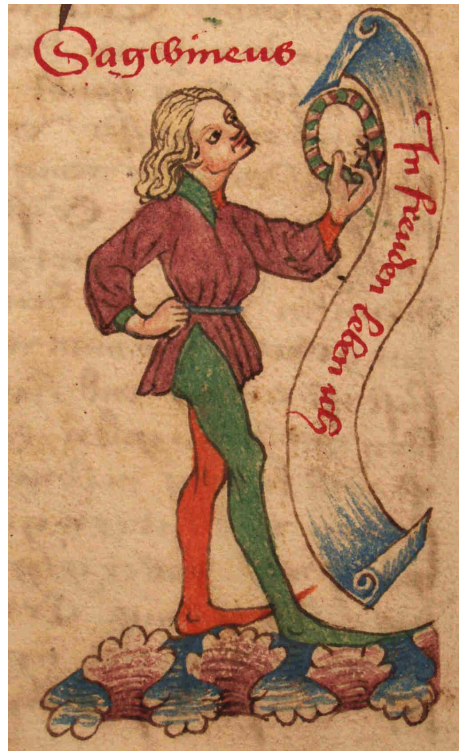 Sagwineus
In freuden leben ich